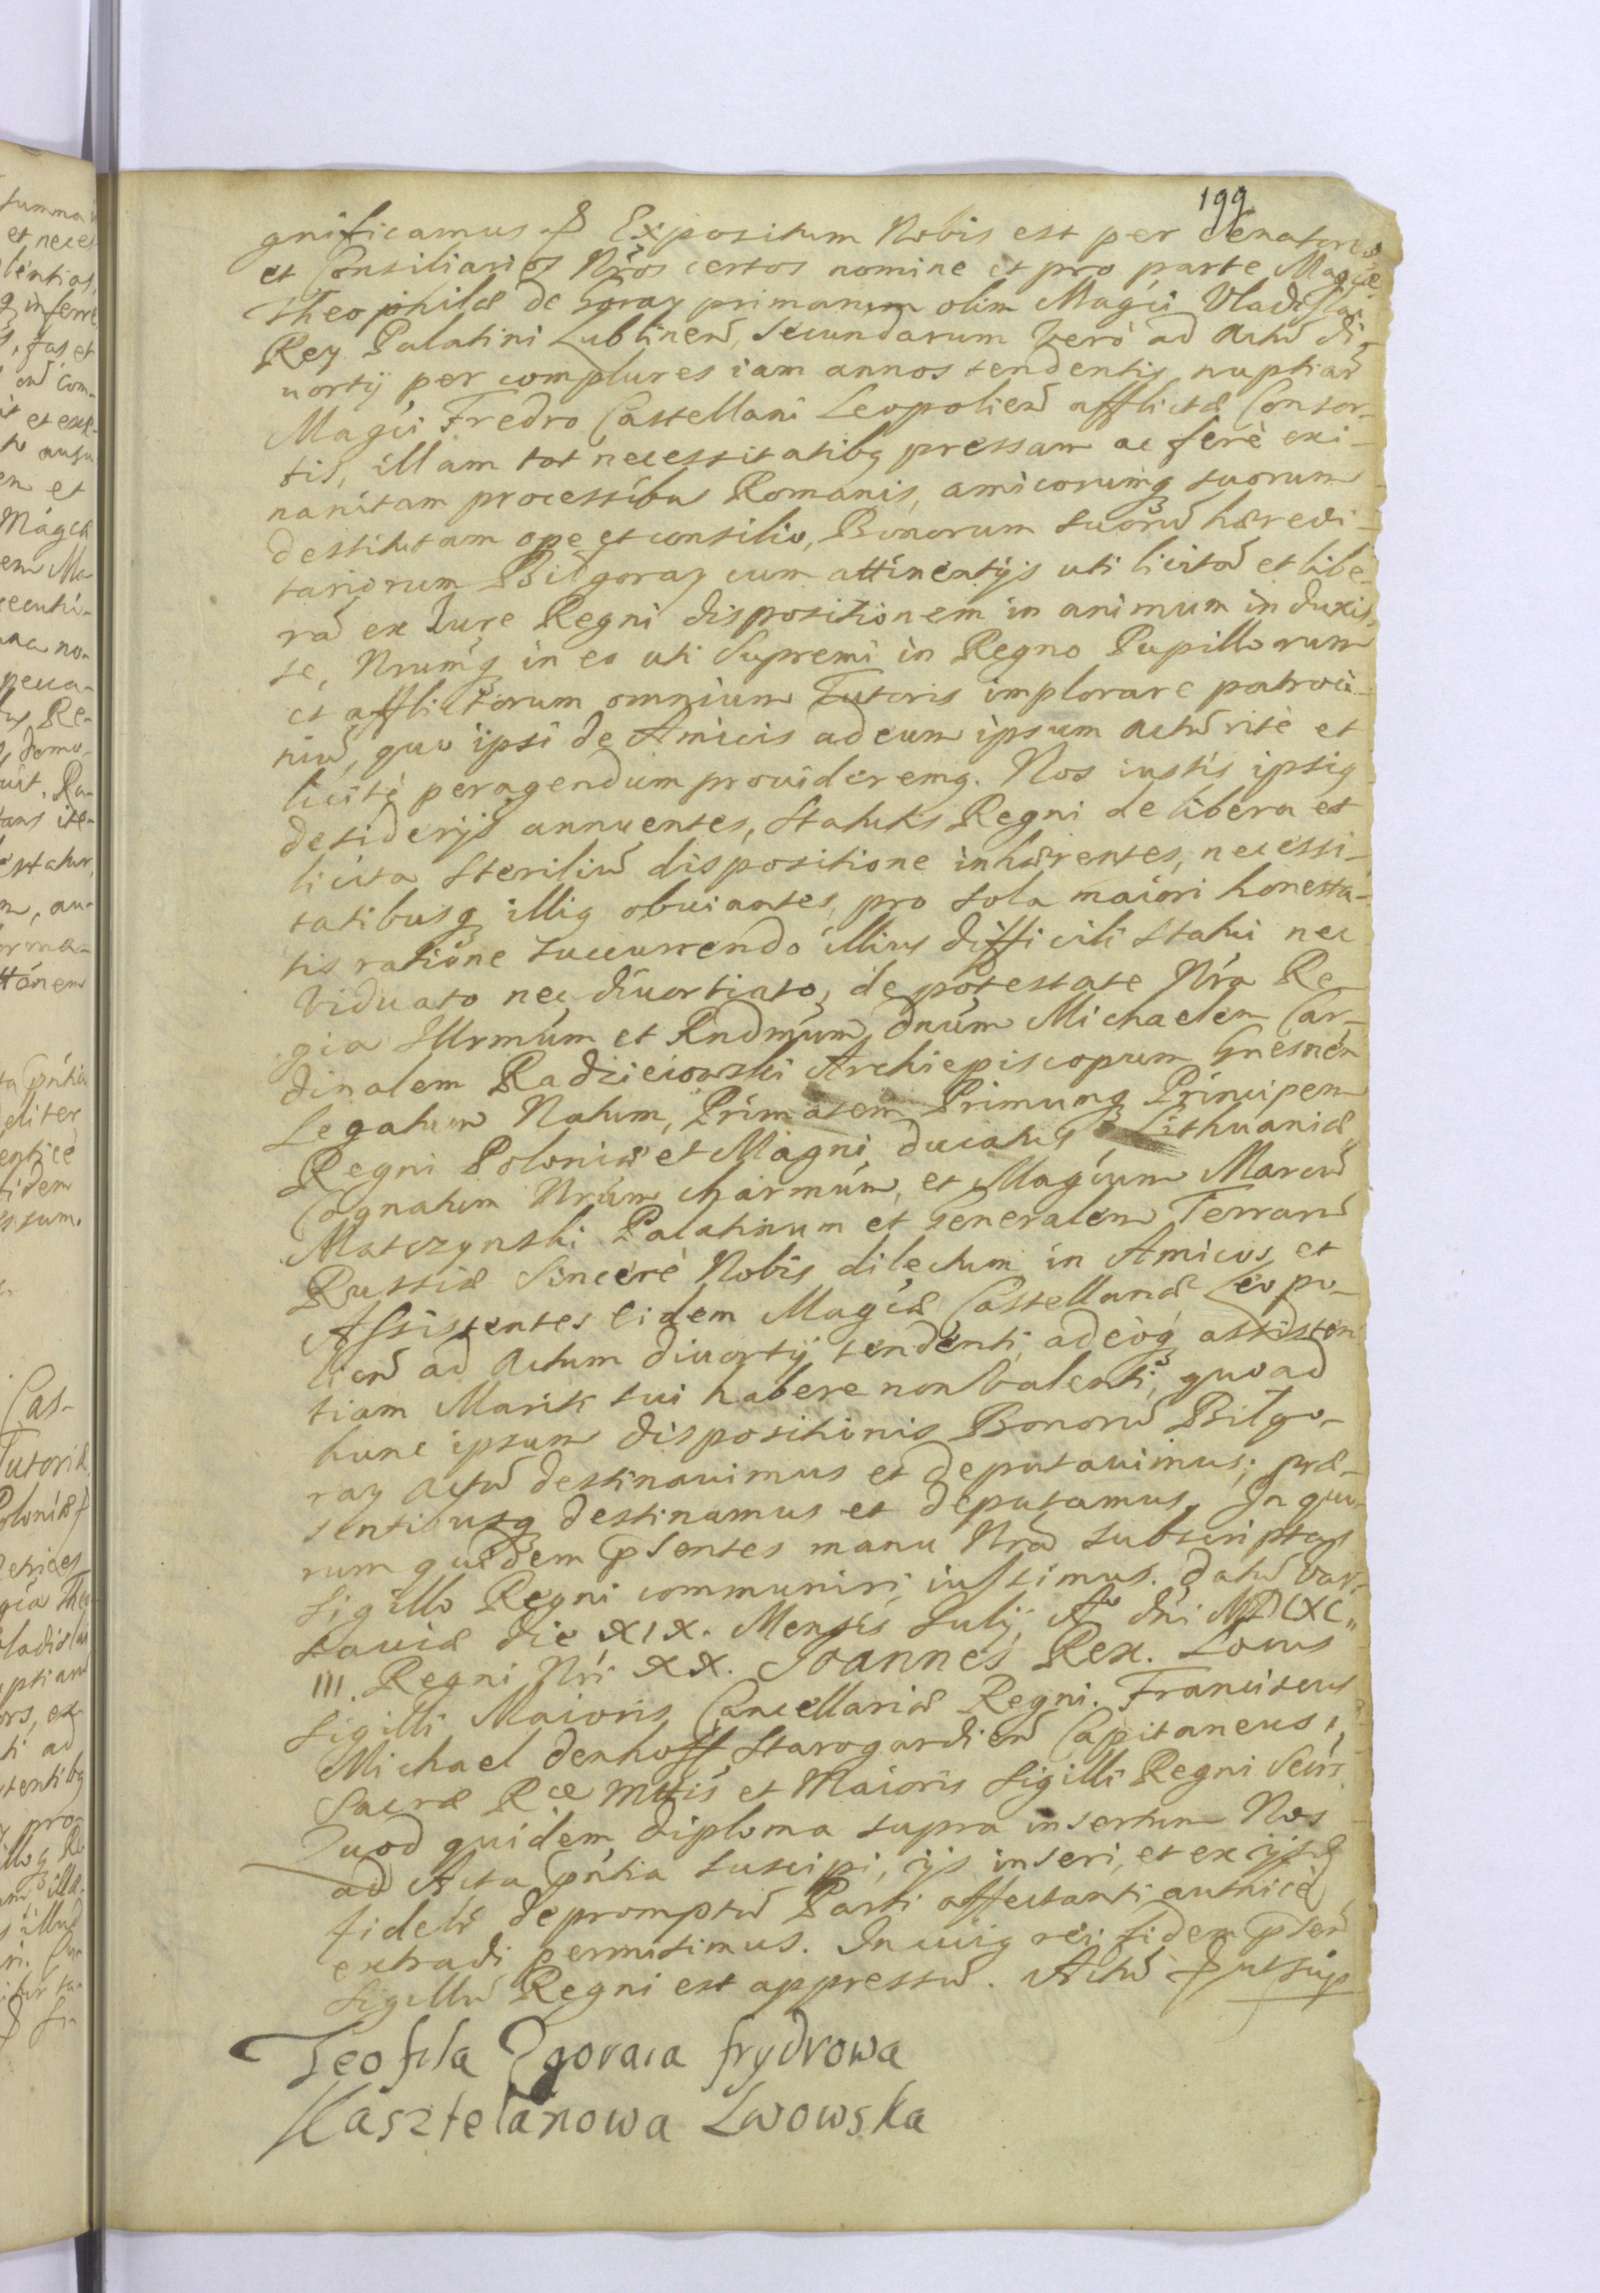 199
gnificamus Expositum Nobis est per Senatores
et Consiliarios Nros certos nomine et pro parte Magcæ
Theophilæ de Goray primarum olim Magci Vladislai
Rey Palatini Lublinen, secundarum verò ad actũ di-
uortij per complures iam annos tendentis nuptiarũ
Magci Fredro Castellani Leopolien afflictæ Consor-
tis, illam tot necessitatibq pressam ac ferè exi-
nanitam processibus Romanis, amicorumq suorum
destitutam ope et consilio, Bonorum suorũ hæredi-
tariorum Bilgoray cum attinentijs uti licitã et libe-
rã ex Iure Regni dispositionem in animum induxis-
se, Nrumq in eo uti Supremi in Regno Pupillorum
et afflictorum omnium Tutoris implorare patroci-
niũ, quo ipsi de Amicis ad eum ipsum actũ ritè et
licitè peragendum prouideremq. Nos iustis ipsiq
desiderijs annuentes, Statutis Regni de libera et
licita steriliũ dispositione inhærentes, necessi-
tatibusq illiq obuiantes, pro sola maiori honesta-
tis ratione succurrendo illius difficili statui nec
viduato nec diuortiato, de potestate Nra Re-
gia Illrmum et Rndmum dnum Michaelem Car-
dinalem Radzieiowski Archiepiscopum Gnesnen
Legatum Natum, Primatem Primumq Principem
Regni Poloniæ et Magni Ducatus Lithuaniæ
Cognatum Nrum charmum, et Magcum Marcũ
Matczynski Palatinum et Generalem Terrarũ
Russiæ Sincerè Nobis dilectum in Amicos et
Assistentes eidem Magcæ Castellanæ Leopo-
lien ad actum diuortij tendenti, adeoq assisten
tiam Mariti sui habere non valenti, quo ad
hunc ipsum dispositionis Bonorũ Bilgo-
ray actũ destinauimus et deputauimus; præ-
sentibusq destinamus et deputamus. In quo-
rum quidem pſentes manu Nra subscriptas
sigillo Regni communiri iussimus. Datũ Var-
sauiæ die XIX. Mensis Iulij, Ao Dni MDCXC
III. Regni Nri XX. Joannes Rex. Locus
Sigilli Maioris Cancellariæ Regni. Franciscus
Michael Denhoff Starogardien Capitaneus,
Sacræ Rœ Mttis et Maioris Sigilli Regni Secrs
Quod quidem diploma supra insertum Nos
ad Acta pntia suscipi, ijs inseri, et ex ijsd
fideliť depromptũ Parti affectanti authicè
extradi permisimus. In cuiq rei fidem pſen
Sigillũ Regni est appressũ. Actũ ut sup
Teofila Zgoraia frydrowa
Kasztelanowa Lwowska